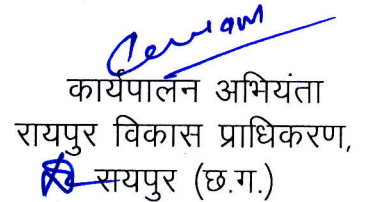 कार्यपालन अभियंता
रायपुर विकास प्राधिकरण,
रायपुर (छ.ग.)